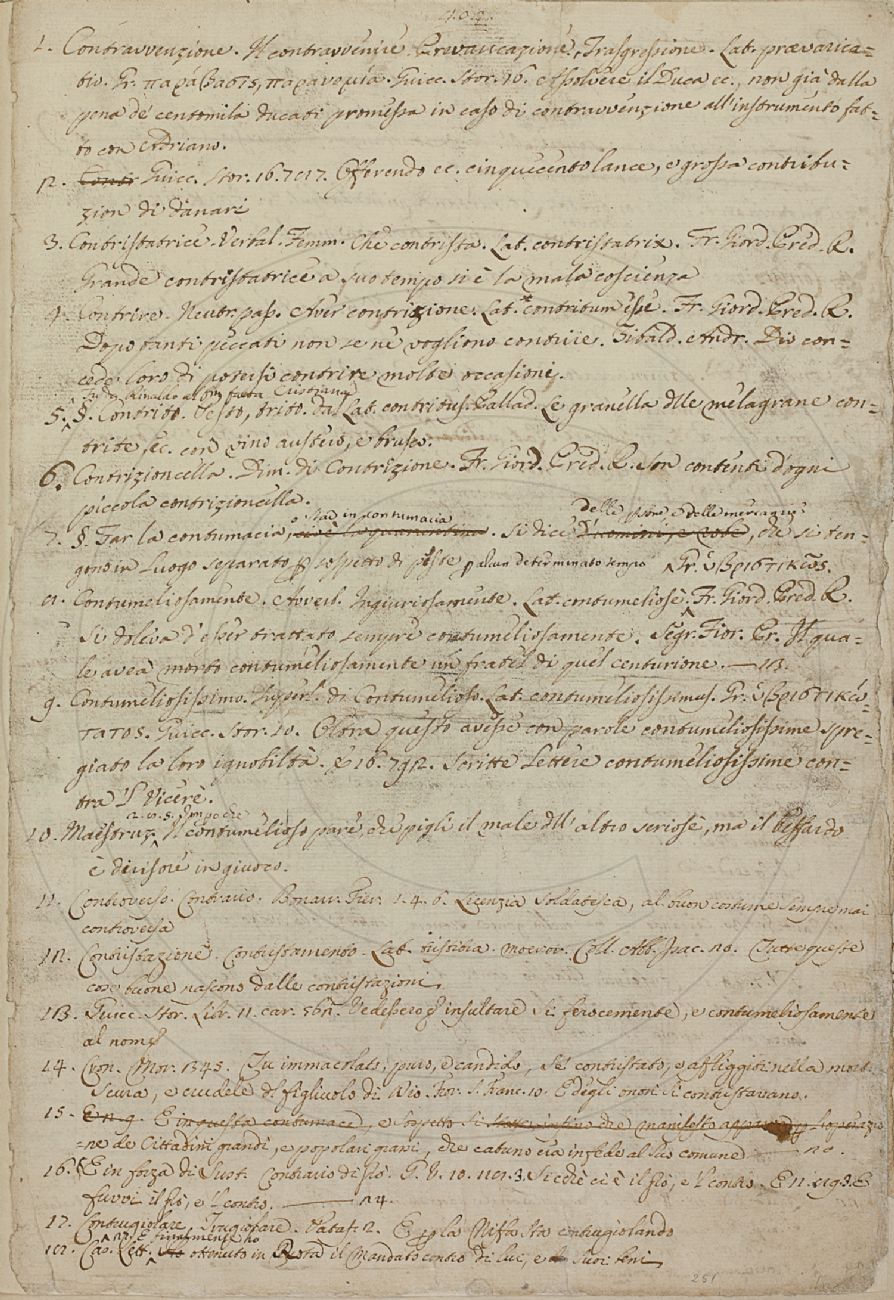 402.
1. Contravvenzione. Il contravvenire. Prevaricazione, Trasgressione. Lat. prævarica=
tio. Gr. παράβασις, παρανομία. Guicc. Stor. 16. Assolvere il Duca ec., non già dalla
pena de' centomila ducati promessa in caso di contravvenzione all'instrumento fat=
to con Adriano.
2. Contr Guicc. Stor. 16. 787. Offerendo ec. cinquecento lance, e grossa contribu=
zion di danari
3. Contristatrice. Verbal. Femm. Che contrista. Lat. contristatrix. Fr. Giord. Pred. R.
Grande contristatrice a suo tempo si è la mala coscienza
4. Contrire. Neutr. pass. Aver contrizione. Lat. contritum esse. Fr. Giord. Pred. R.
Dopo tanti peccati non se ne vogliono contrire. Tibald. Andr. Dio con=
cede loro di potersi contrire molte occasioni.
5. §. Contrito. Pesto, trito. da Lat. contritus. Pallad. Le granella dlle melagrane con=
trite ec. con vino austero, e brusco.
6. Contrizioncella. Dim. di Contrizione. Fr. Giord. Pred. R. Son contenti d'ogni
piccola contrizioncella.
o star in contumacia delle persone e delle mercanzie
7. §. Far la contumacia, cioè la quarantina. Si dice d'uomini, e robe, che si ten=
gono in luogo separato p sospetto di peste p alcun determinato tempo
8. Contumeliosamente. Avverb. Ingiuriosamente. Lat. contumeliose. Gr. ὑβριστικῶς. Fr. Giord. Pred. R.
Si doleva d'esser trattato sempre contumeliosamente. Segr. Fior. Pr. Il qua=
le avea morto contumeliosamente un fratel di quel centurione. — 13.
9. Contumeliosissimo. Superl. di Contumelioso. Lat. contumeliosissimus. Gr. ὑβριστικώ=
τατος. Guicc. Stor. 10. Oltra questo avesse con parole contumeliosissime spre=
giato la loro ignobiltà. E 16. 792. Scritte lettere contumeliosissime con=
tra 'l Vicerè.
10. Maestruzz. 2. 8. 5. Impoche Il contumelioso pare, che pigli il male dll'altro seriose, ma il beffardo
è divisore in giuoco.
11. Controverso. Contrario. Bonarr. Fier. 1. 4. 6. Licenzia soldatesca, al buon costume sempre mai
controversa
12. Contristazione. Contristamento. Lat. tristitia. moeror. Coll. Ab. Isac. 20. Intra queste
cose buone nascono dalle contristazioni.
13. Guicc. Stor. Lib. 11. car. 562. Vedessero insultare sì ferocemente, e contumeliosamente
al nome
14. Cron. Mor. 345. Tu immacolato, puro, e candido, se' contristato, e affliggiti nella morte
scura, e crudele del figliuolo di Dio. Fior. S. Franc. 10. E degli onori si contristavano.
15. E in questa contumace, e sospetto si che manifesto
ne de' Cittadini grandi, e popolari grassi, che catuno era infedele al suo comune — 20.
16. E in forza di Sust. Contrario di sì. G. V. 10. 112. 3. Si eché ci è il sì, e 'l contro.
furvi il sì, e 'l contro. — 24.
17. Contrugiolare. Trugiolare. Pataf. 2. E p la Nissa sta contrugiolando
18. Car. Lett. 2. E finalmente ho ottenuto in Rota il mandato contro di lui, e suoi beni
251